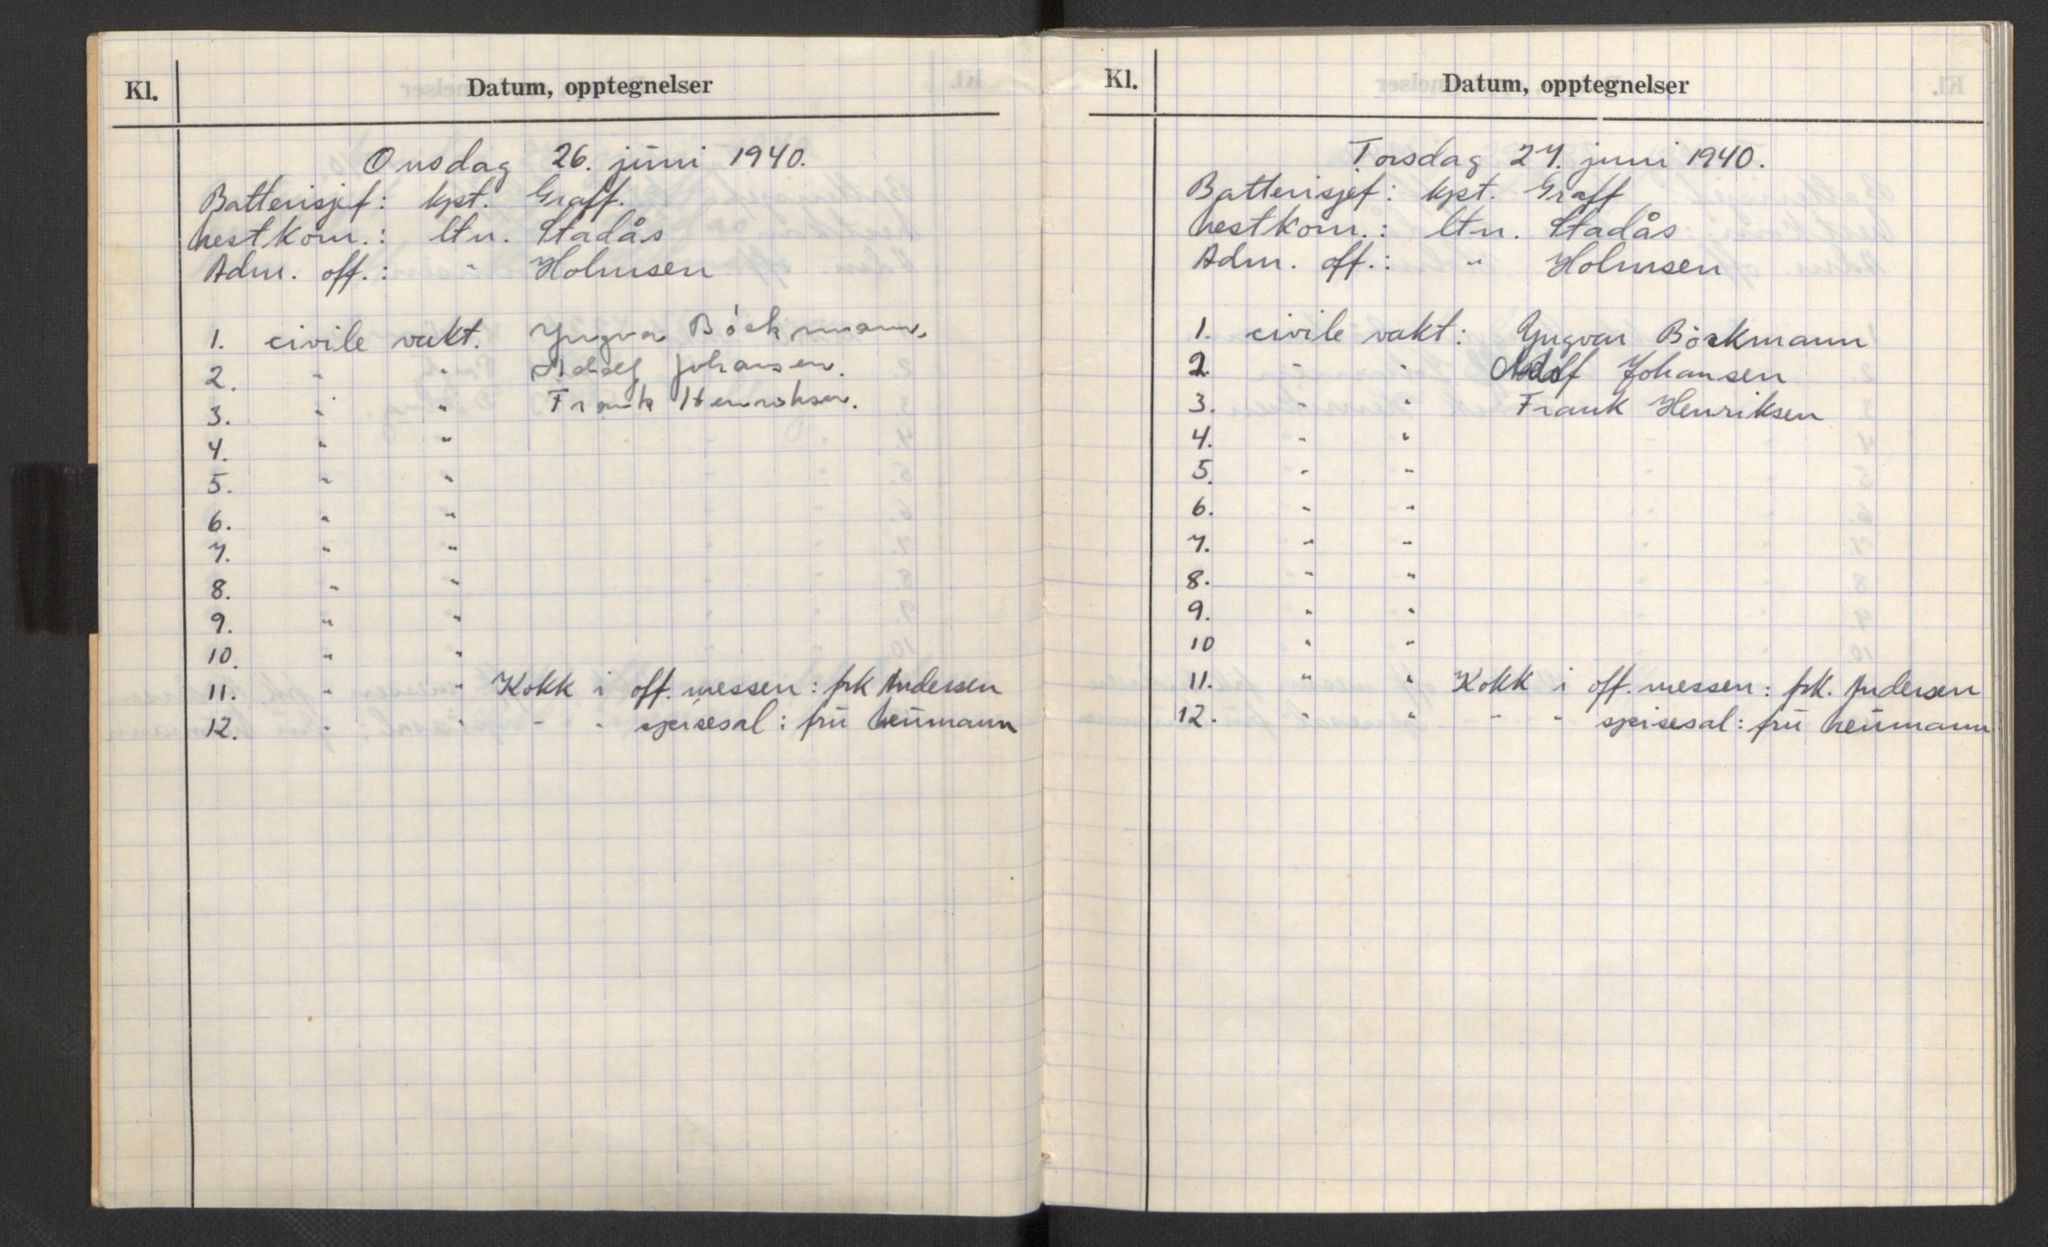 Kl. Datum, opptegnelser
Onsdag 26. juni 1940.
Batterisjef: kpt. Graff.
Nestkom.: ltn. Stadås
Adm. off.: " Holmsen
1. civile vakt. Yngvar Böckmann.
2. " " Adolf Johansen.
3. " " Frank Henriksen.
4. " "
5. " "
6. " "
7. " "
8. " "
9. " "
10. " "
11. " " Kokk i off. messen: frk Andersen
12. " " " " spisesal: frü Neümann
Kl. Datum, opptegnelser
Torsdag 27. juni 1940.
Batterisjef: kpt. Graff
Nestkom.: ltn. Stadås
Adm. off.: " Holmsen
1. civile vakt: Yngvar Böckmann
2. " " Adolf Johansen
3. " " Frank Henriksen
4. " "
5. " "
6. " "
7. " "
8. " "
9. " "
10 " "
11. " " Kokk i off. messen: frk. Andersen
12. " " " " spisesal: frü Neümann